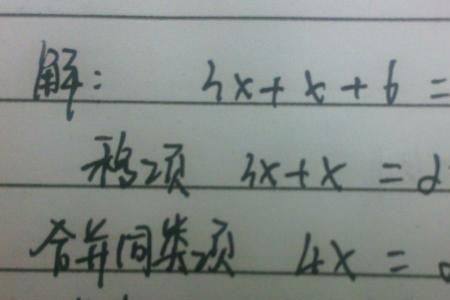 解: 3x+x+6=
移项 3x+x=2
合并同类项 4x=